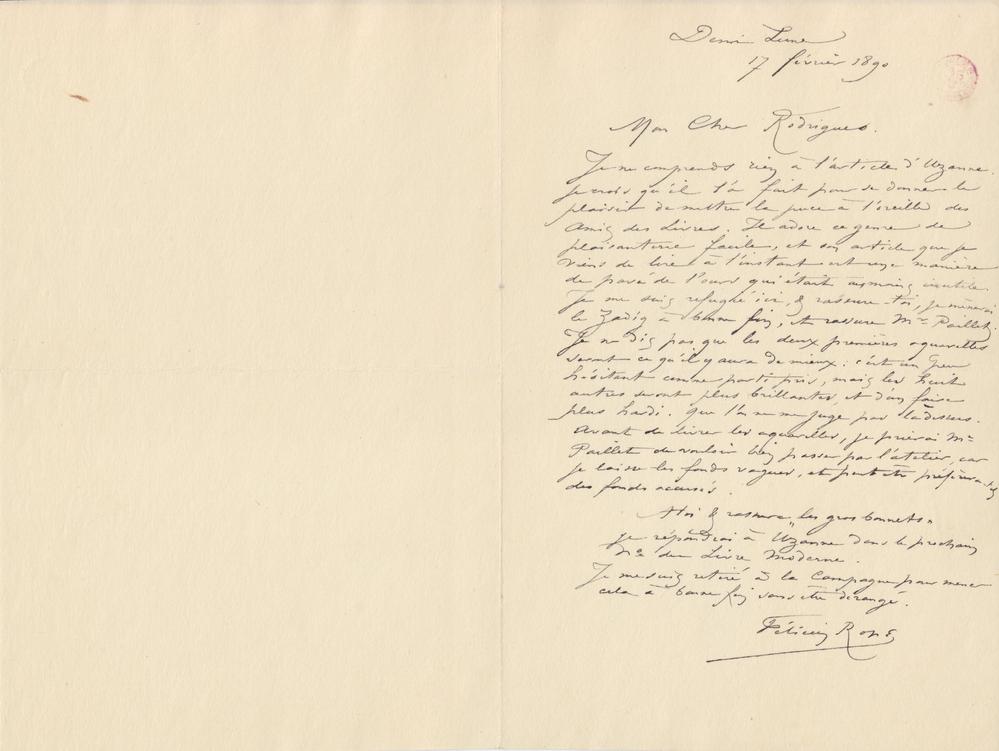 Demi Lune
17 février 1890
Mon Cher Rodrigues.
Je ne comprends rien à l'article d'Uzanne.
Je crois qu'il l'a fait pour se donner le
plaisir de mettre la puce à l'oreille des
Amis des Livres. Il adore ce genre de
plaisanterie facile, et son article que je
viens de lire à l'instant est une manière
de pavé de l'ours qui était au moins inutile.
Je me suis refugié ici, & rassure-toi, je mènerai
le Zadig à bonne fin, et rassure Mr Paillet.
Je ne dis pas que les deux premières aquarelles
seront ce qu'il y aura de mieux: c'est un peu
hésitant comme parti pris, mais les huit
autres seront plus brillantes et d'un faire
plus hardi. Que l'on ne me juge pas là dessus.
Avant de livrer les aquarelles, je prierai Mr
Paillet de vouloir bien passer par l'atelier, car
je laisse les fonds vagues, et peut être préférera-t-il
des fonds accusés.
A toi & rassure "les gros bonnets"
je répondrai à Uzanne dans le prochain
No du Livre Moderne.
Je me suis retiré à la Campagne pour mener
cela à bonne fin sans être dérangé.
Félicien Rops